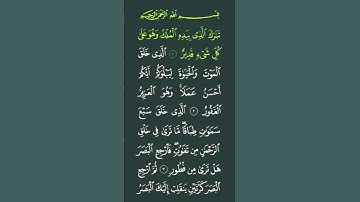 بِسْمِ اللهِ الرَّحْمٰنِ الرَّحِيْمِ
تَبٰرَكَ الَّذِى بِيَدِهِ الْمُلْكُ وَهُوَ عَلٰى
كُلِّ شَىْءٍ قَدِيرٌ ١ الَّذِى خَلَقَ
الْمَوْتَ وَالْحَيٰوةَ لِيَبْلُوَكُمْ أَيُّكُمْ
أَحْسَنُ عَمَلًا وَهُوَ الْعَزِيزُ
الْغَفُورُ ٢ الَّذِى خَلَقَ سَبْعَ
سَمٰوٰتٍ طِبَاقًا مَّا تَرٰى فِى خَلْقِ
الرَّحْمٰنِ مِن تَفٰوُتٍ فَارْجِعِ الْبَصَرَ
هَلْ تَرٰى مِن فُطُورٍ ٣ ثُمَّ ارْجِعِ
الْبَصَرَ كَرَّتَيْنِ يَنقَلِبْ إِلَيْكَ الْبَصَرُ